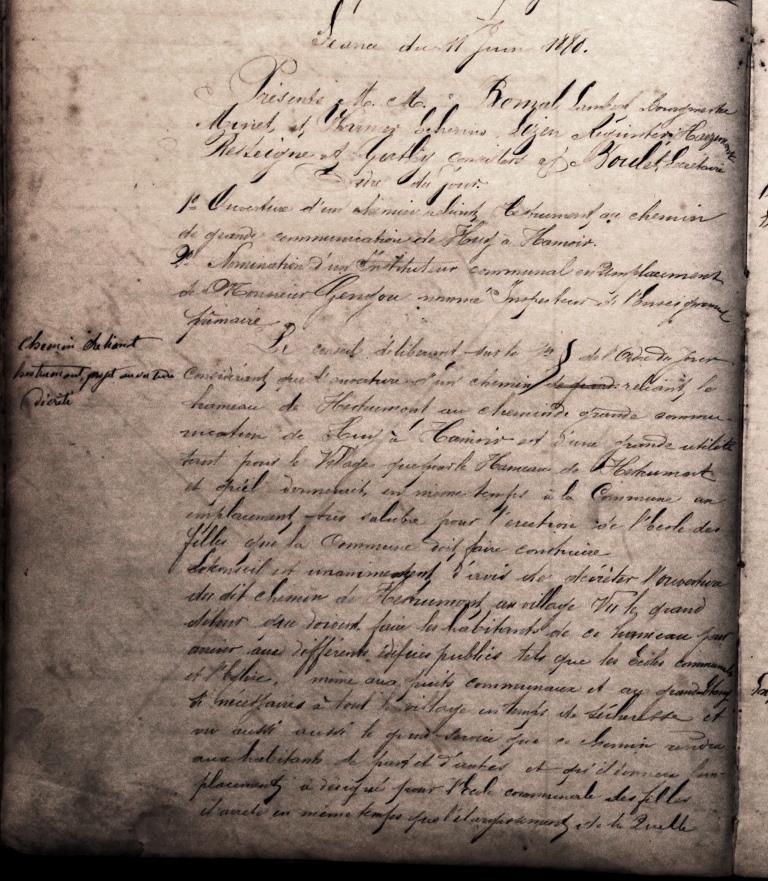 Séance du 11 Juin 1880.
Présents M. M. Ronzal, Lambert bourgmestre
Minet, et Warnier Echevins,
Resteigne et conseillers et Boulet, Secrétaire
Ordre du jour
1° Ouverture d'un chemin reliant Hestreumont au chemin
de grande communication de Huy à Hamoir.
2° Nomination d'un Instituteur communal en remplacement
de Monsieur Gendou nommé Inspecteur de l'Enseignement
primaire
Le conseil délibérant sur le 1er § de l'Ordre du Jour
Considérant que l'ouverture d'un chemin de grande reliant le
hameau de Hestreumont au chemin de grande commu-
nication de Huy à Hamoir est d'une grande utilité
tant pour le Village que pour le Hameau de Hestreumont
et qu'il donnerait en même temps à la Commune un
emplacement très salubre pour l'érection de l'Ecole des
filles que la Commune doit faire construire
Le conseil est unanimement d'avis de décréter l'ouverture
du dit chemin de Hestreumont au village Vu le grand
détour que doivent faire les habitants de ce hameau pour
arriver aux différents édifices publics tels que les Ecoles communales
et l'Eglise, même aux puits communaux et au grand étang
si nécessaires à tout le village en temps de sécheresse et
vu aussi aussi le grand service que ce chemin rendra
aux habitants de part et d'autres et qu'il donnera l'em-
placement désigné pour l'Ecole communale des filles
il arrête en même temps que l'élargissement de la Ruelle
chemin reliant
hestreumont, projet ouverture
décrété